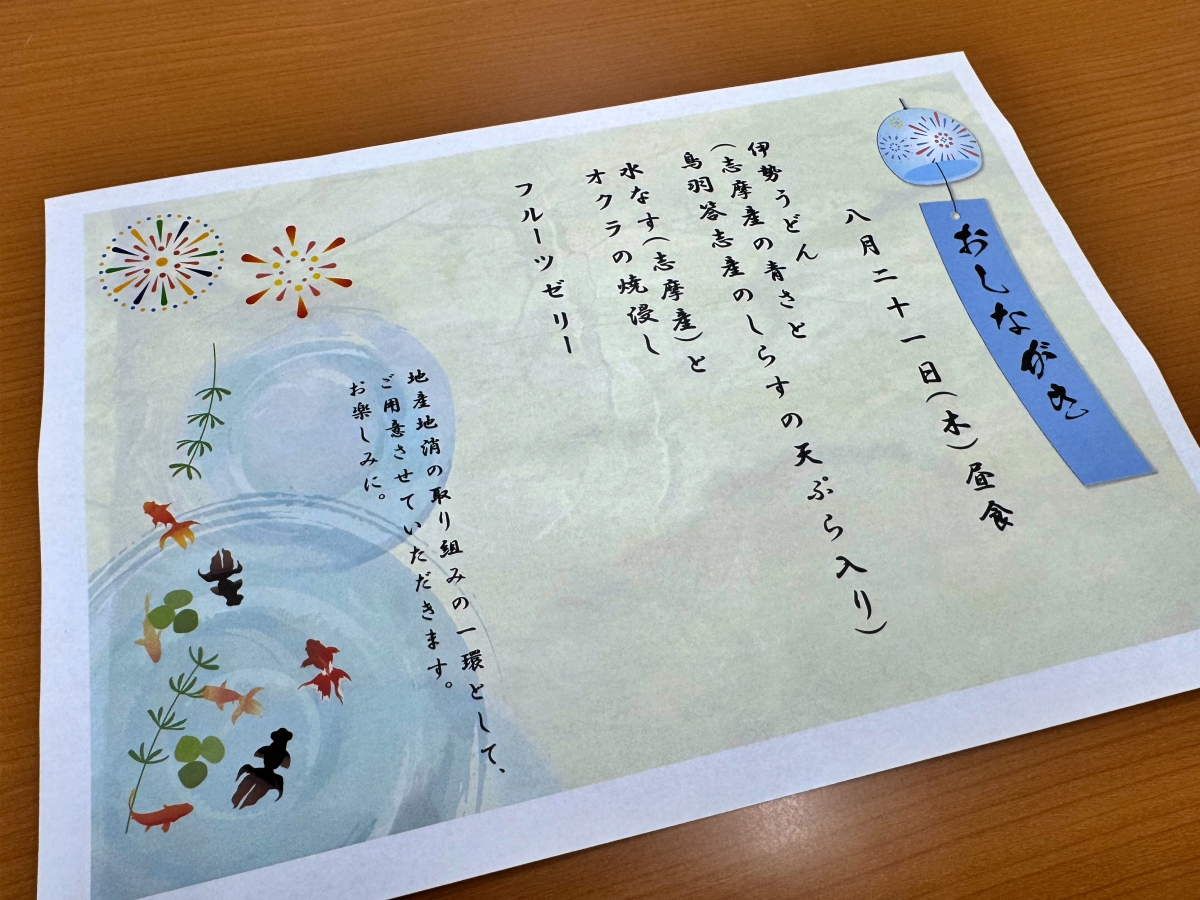 おしながき
八月二十一日(木)昼食
伊勢うどん
(志摩産の青さと
鳥羽答志産のしらすの天ぷら入り)
水なす(志摩産)と
オクラの焼浸し
フルーツゼリー
地産地消の取り組みの一環として、
ご用意させていただきます。
お楽しみに。